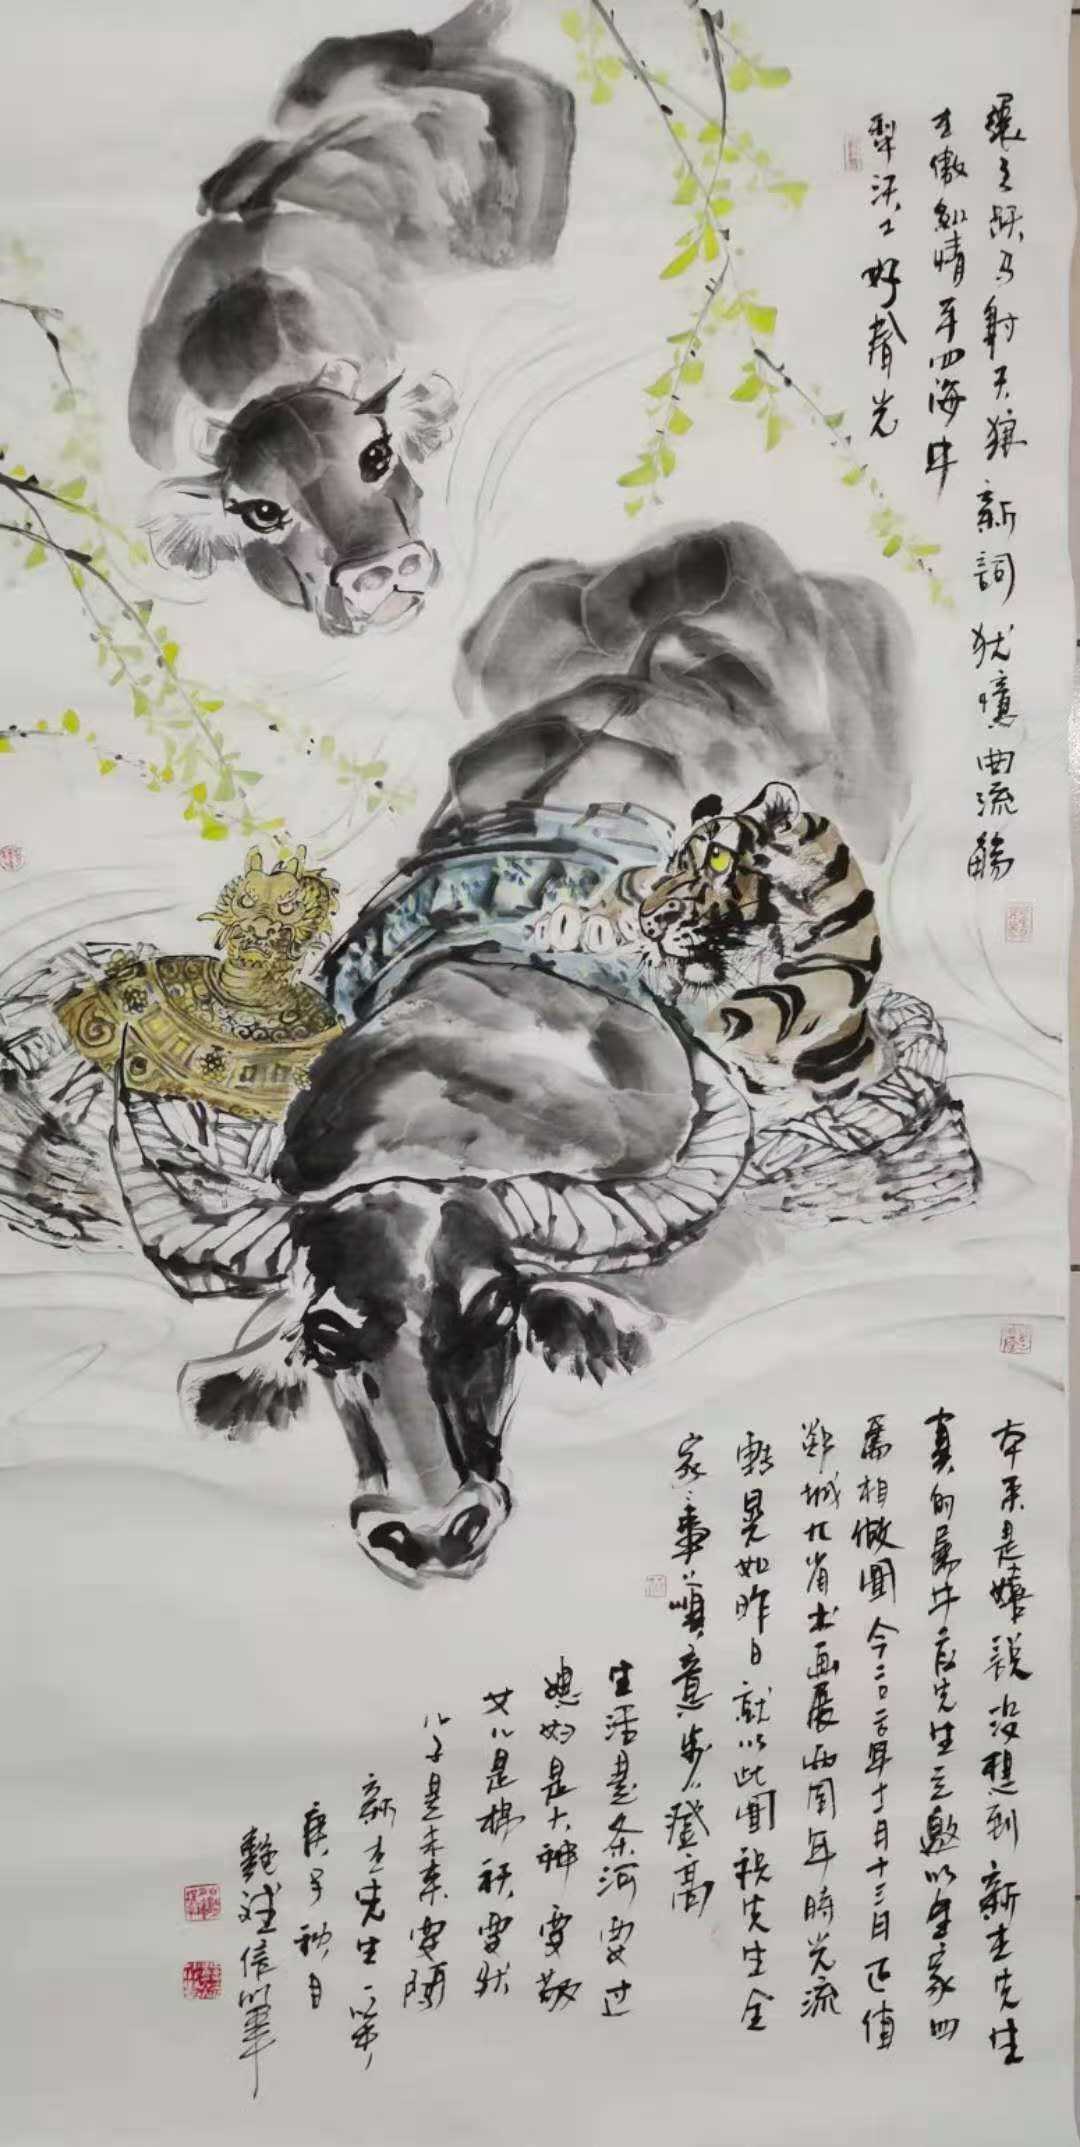 跃马射天狼 新詞犹憶曲流觴
才傲情平四海 牛
犁沃土好光
本来是嬉説没想到新杰先生
真的属牛应先生之邀以全家四
属相做圖今二〇二〇年十一月十三日正值
城九省书画展两周年時光流
転晃如昨日就以此圖祝先生全
家事事順意步步登高
生活是条河要过
媳妇是大神要敬
女儿是棉袄要
儿子是未来要
新杰先生一笑
庚子秋月
信筆